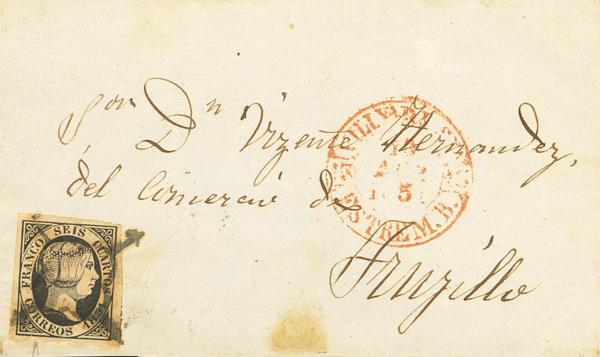 Sor Dn Vizente Hernandez,
del Comercio de
Truzillo
FRANCO SEIS CUARTOS
CORREOS 1851
ESTREM. B.